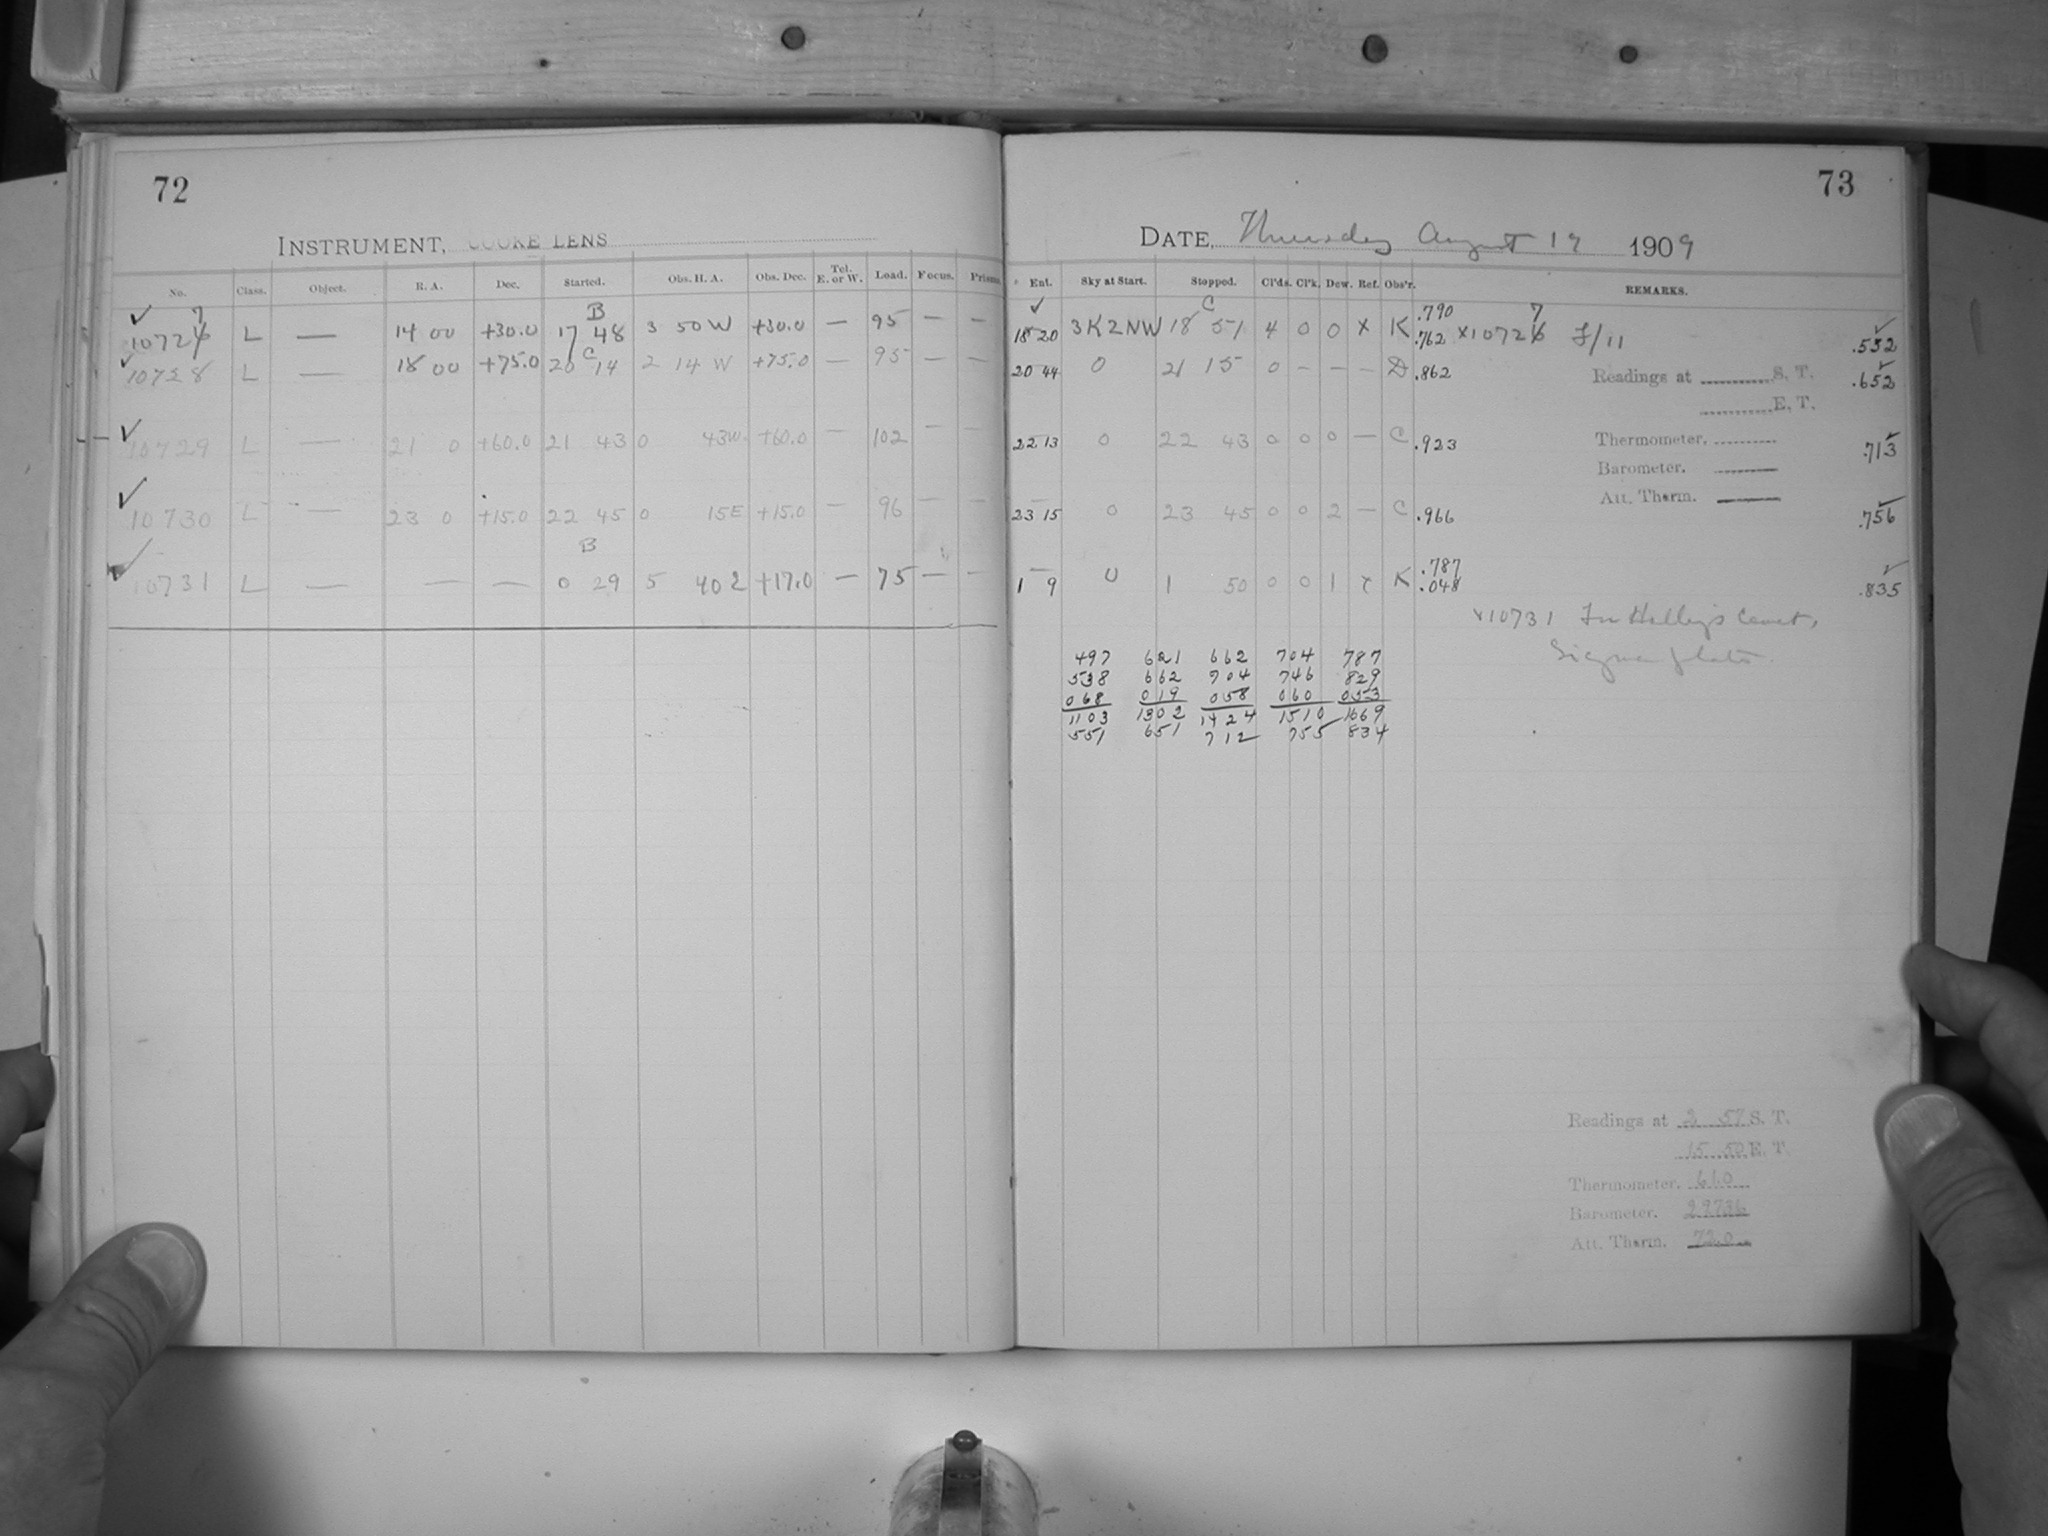 72
INSTRUMENT, COOKE LENS
No. Class. Object. R. A. Dec. Started. Obs. H. A. Obs. Dec. Tel. E. or W. Load. Focus. Prisms
7 B
10726 L — 14 00 +30.0 17 48 3 50 W +30.0 — 95 — —
C
10728 L — 18 00 +75.0 20 14 2 14 W +75.0 — 95 — —
10729 L — 21 0 +60.0 21 43 0 43W. +60.0 — 102 — —
10730 L — 23 0 +15.0 22 45 0 15E +15.0 — 96 — —
B
10731 L — — — 0 29 5 40 2 +17.0 — 75 — —
73
DATE, Thursday August 19 1909
Ent. Sky at Start. Stopped. Cl'ds. Cl'k. Dew. Ref. Obs'r. REMARKS.
C .790 7
18 20 3K2NW 18 51 4 0 0 x K .762 x10726 F/11 .552
20 44 0 21 15 0 – – – D .862 .652
Readings at S. T.
E. T.
22 13 0 22 43 0 0 0 — C .923 .713
Thermometer.
Barometer.
Att. Therm.
23 15 0 23 45 0 0 2 — C .966 .756
.787
1 9 0 1 50 0 0 1 x K .048 .835
x10731 For Halley's Comet,
Sigma plate.
497 621 662 704 787
538 662 704 746 829
068 019 058 060 053
1103 1302 1424 1510 1669
551 651 712 755 834
Readings at 2 57 S. T.
15 50 E. T.
Thermometer. 61.0
Barometer. 29.736
Att. Therm. 72.0